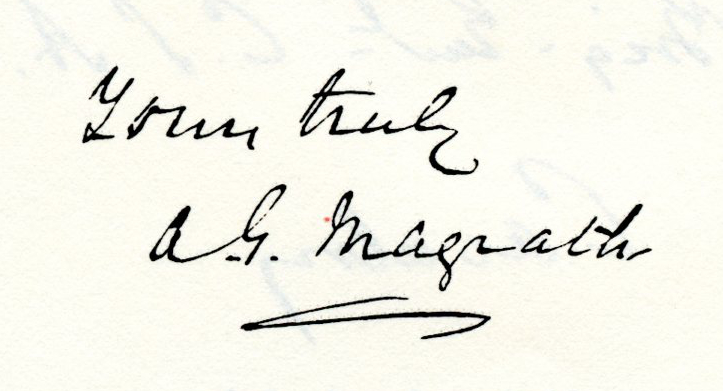 Yours truly
A. G. Magrath